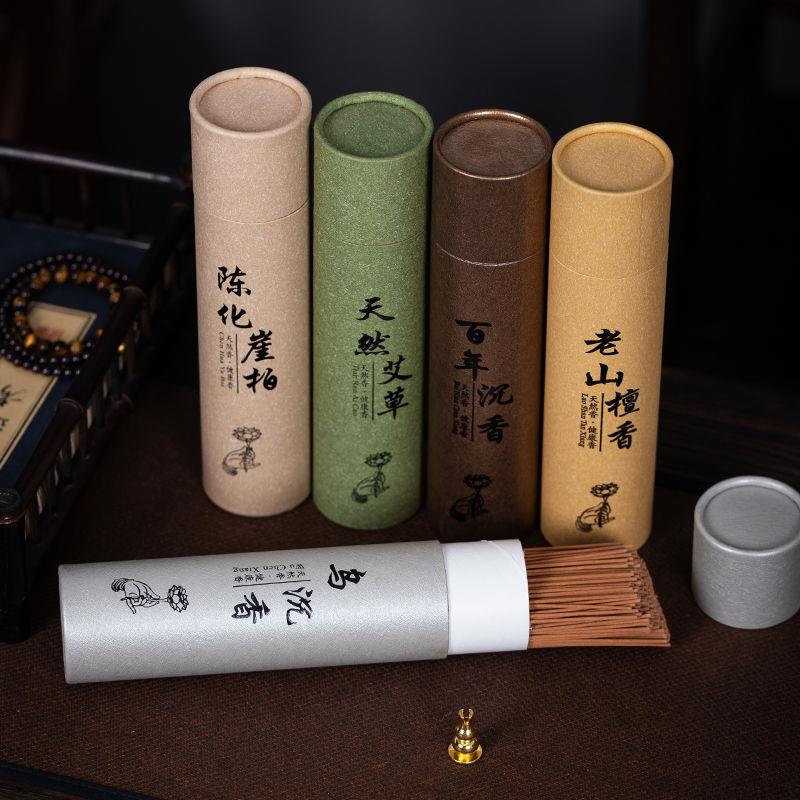 陈化
崖柏
天然香·健康香
Chen Hua Ya Bai
天然
艾草
天然香·健康香
Tian Ran Ai Cao
百年
沉香
天然香·健康香
Bai Nian Chen Xiang
老山
檀香
天然香·健康香
Lao Shan Tan Xiang
乌
沉香
天然香·健康香
Wu Chen Xiang